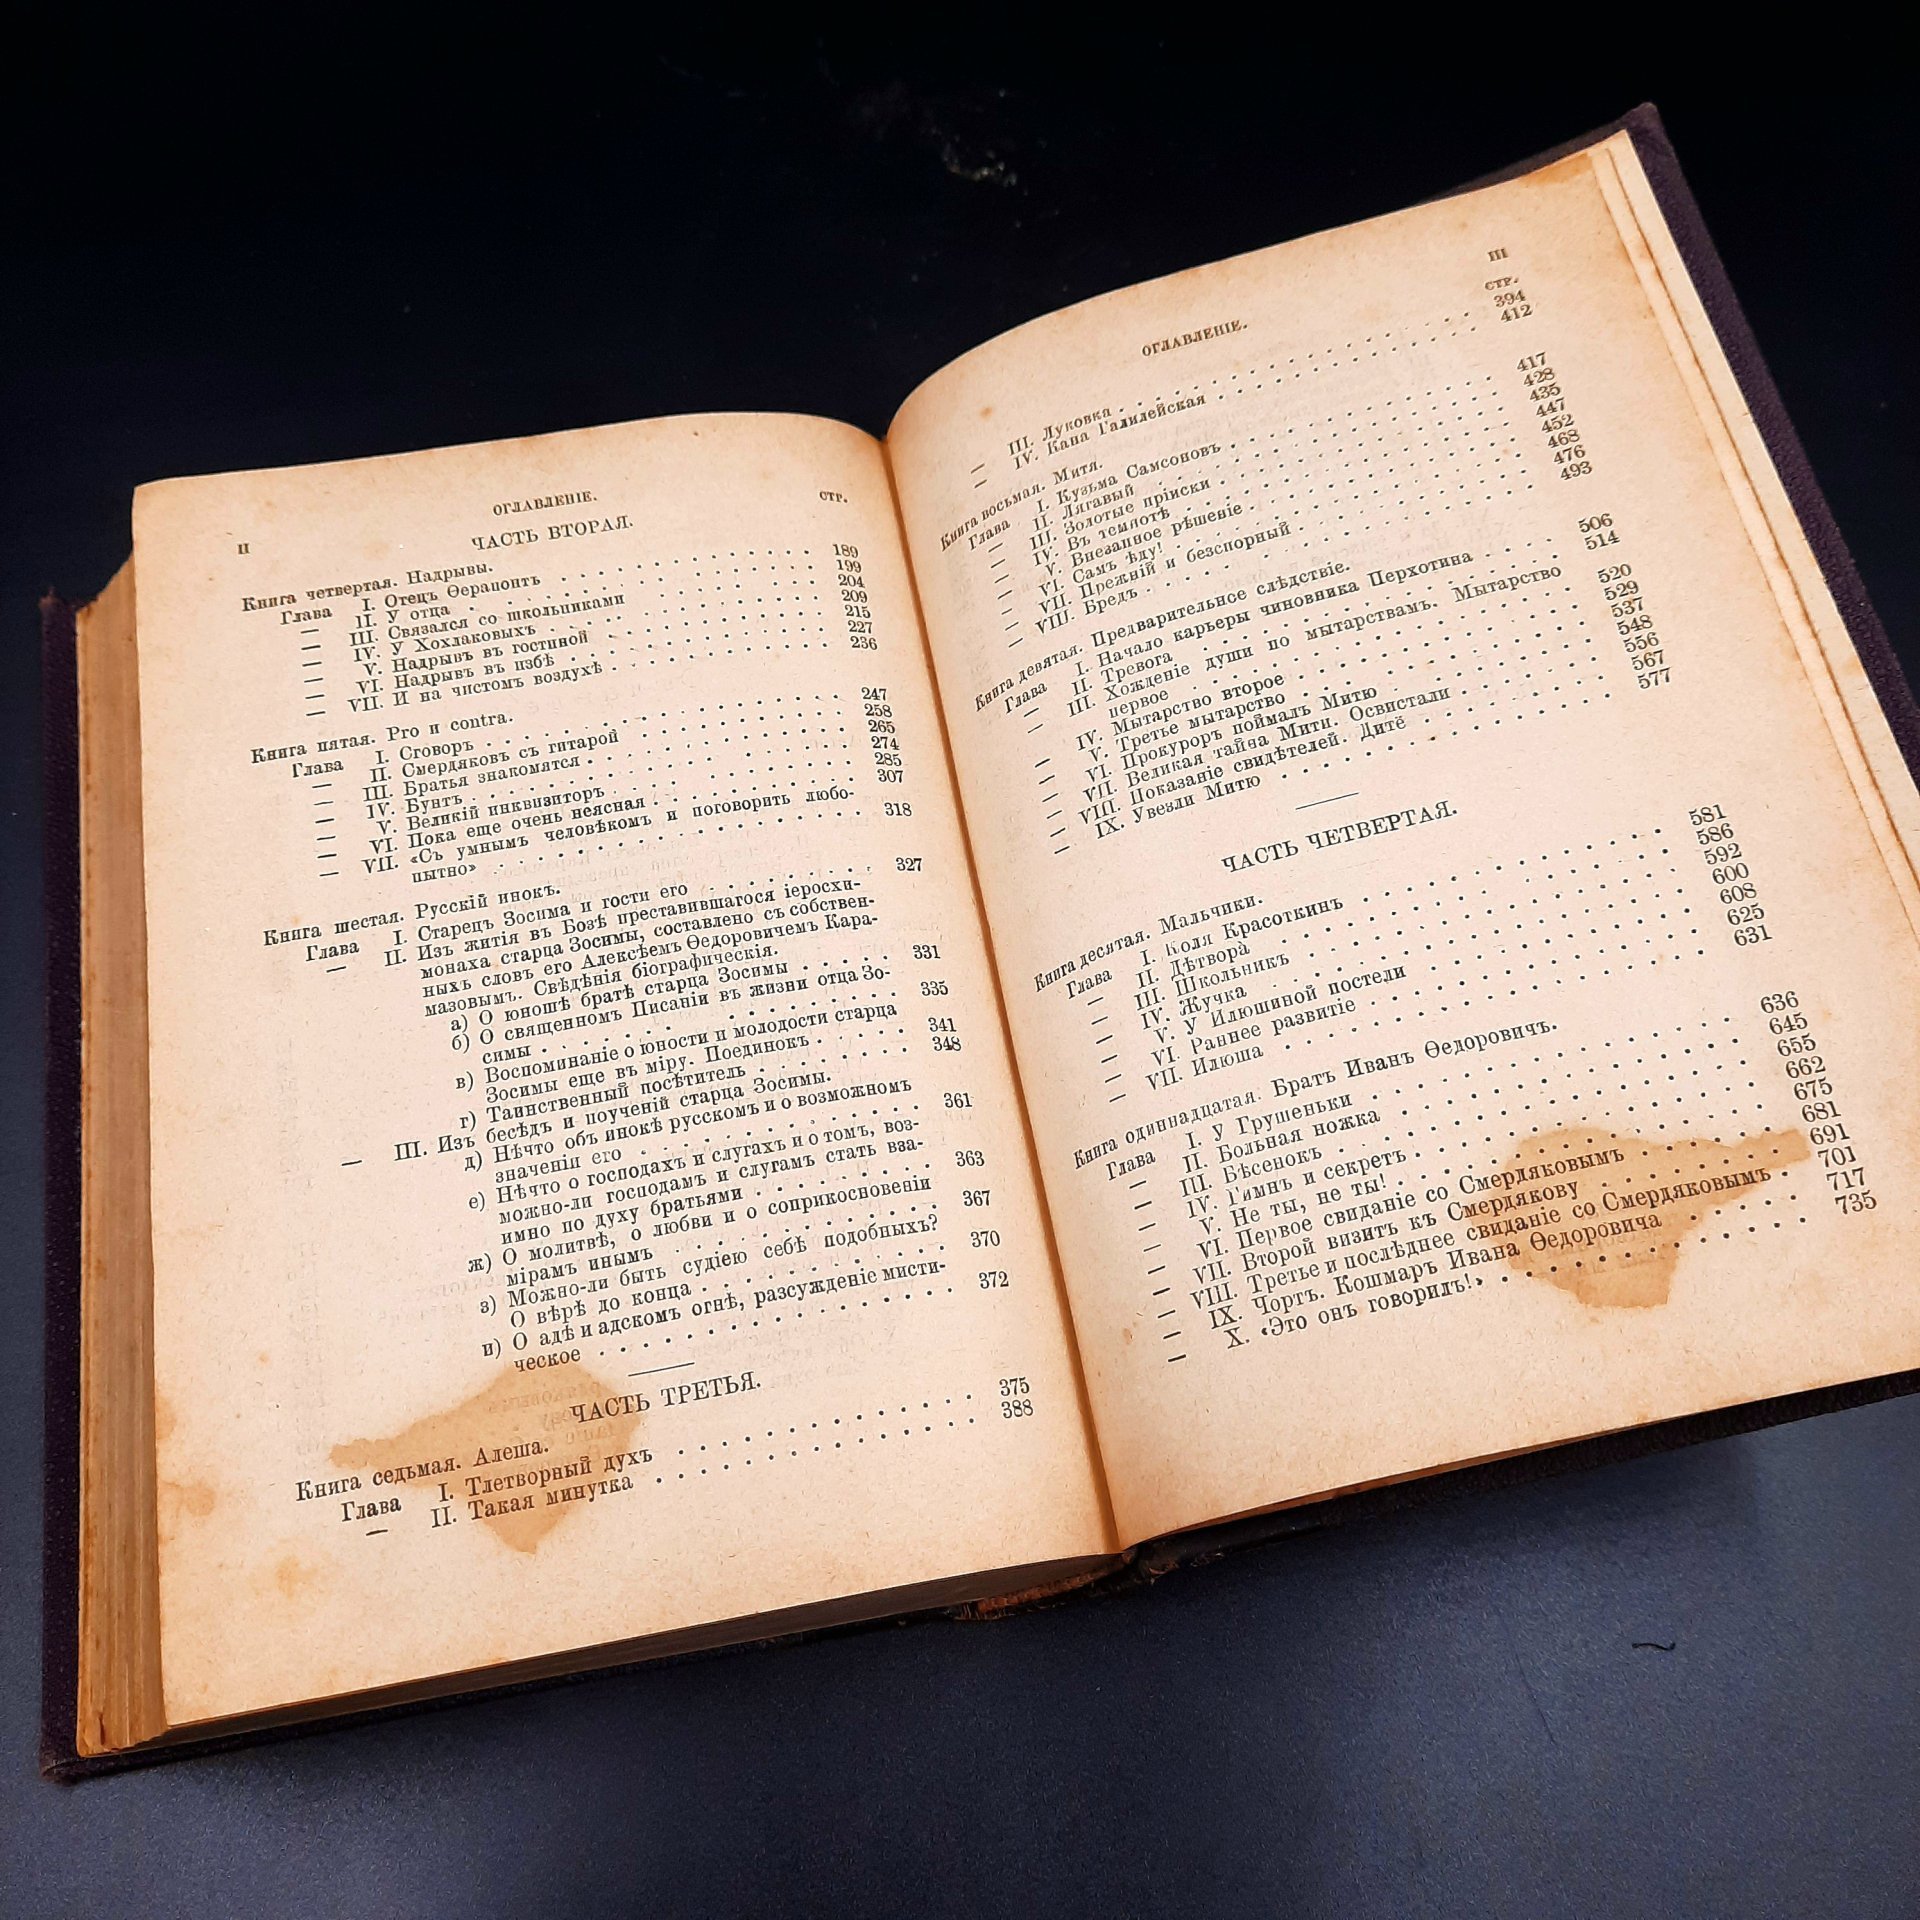 II
ОГЛАВЛЕНІЕ.
СТР.
ЧАСТЬ ВТОРАЯ.
Книга четвертая. Надрывы.
Глава I. Отецъ Ѳерапонтъ . . . . . . . . . . 189
— II. У отца . . . . . . . . . . 199
— III. Связался со школьниками . . . . . . . . . . 204
— IV. У Хохлаковыхъ . . . . . . . . . . 209
— V. Надрывъ въ гостиной . . . . . . . . . . 215
— VI. Надрывъ въ избѣ . . . . . . . . . . 227
— VII. И на чистомъ воздухѣ . . . . . . . . . . 236
Книга пятая. Pro и contra.
Глава I. Сговоръ . . . . . . . . . . 247
— II. Смердяковъ съ гитарой . . . . . . . . . . 258
— III. Братья знакомятся . . . . . . . . . . 265
— IV. Бунтъ . . . . . . . . . . 274
— V. Великій инквизиторъ . . . . . . . . . . 285
— VI. Пока еще очень неясная . . . . . . . . . . 307
— VII. «Съ умнымъ человѣкомъ и поговорить любо-
пытно» . . . . . . . . . . 318
Книга шестая. Русскій инокъ.
Глава I. Старецъ Зосима и гости его . . . . . . . . . . 327
— II. Изъ житія въ Бозѣ преставившагося іеросхи-
монаха старца Зосимы, составлено съ собствен-
ныхъ словъ его Алексѣемъ Ѳедоровичемъ Кара-
мазовымъ. Свѣдѣнія біографическія.
а) О юношѣ братѣ старца Зосимы . . . . . . 331
б) О священномъ Писаніи въ жизни отца Зо-
симы . . . . . . . . . . 335
в) Воспоминаніе о юности и молодости старца
Зосимы еще въ міру. Поединокъ . . . . . 341
г) Таинственный посѣтитель . . . . . . . . . . 348
— III. Изъ бесѣдъ и поученій старца Зосимы.
д) Нѣчто объ инокѣ русскомъ и о возможномъ
значеніи его . . . . . . . . . . 361
е) Нѣчто о господахъ и слугахъ и о томъ, воз-
можно-ли господамъ и слугамъ стать вза-
имно по духу братьями . . . . . . . . . . 363
ж) О молитвѣ, о любви и о соприкосновеніи
мірамъ инымъ . . . . . . . . . . 367
з) Можно-ли быть судіею себѣ подобныхъ?
О вѣрѣ до конца . . . . . . . . . . 370
и) О адѣ и адскомъ огнѣ, разсужденіе мисти-
ческое . . . . . . . . . . 372
ЧАСТЬ ТРЕТЬЯ.
Книга седьмая. Алеша.
Глава I. Тлетворный духъ . . . . . . . . . . 375
— II. Такая минутка . . . . . . . . . . 388
III
ОГЛАВЛЕНІЕ.
СТР.
— III. Луковка . . . . . . . . . . 394
— IV. Кана Галилейская . . . . . . . . . . 412
Книга восьмая. Митя.
Глава I. Кузьма Самсоновъ . . . . . . . . . . 417
— II. Лягавый . . . . . . . . . . 428
— III. Золотые пріиски . . . . . . . . . . 435
— IV. Въ темнотѣ . . . . . . . . . . 447
— V. Внезапное рѣшеніе . . . . . . . . . . 452
— VI. Самъ ѣду! . . . . . . . . . . 468
— VII. Прежній и безспорный . . . . . . . . . . 476
— VIII. Бредъ . . . . . . . . . . 493
Книга девятая. Предварительное слѣдствіе.
Глава I. Начало карьеры чиновника Перхотина . . . . 506
— II. Тревога . . . . . . . . . . 514
— III. Хожденіе души по мытарствамъ. Мытарство
первое . . . . . . . . . . 520
— IV. Мытарство второе . . . . . . . . . . 529
— V. Третье мытарство . . . . . . . . . . 537
— VI. Прокуроръ поймалъ Митю . . . . . . . . . . 548
— VII. Великая тайна Мити. Освистали . . . . . . 556
— VIII. Показаніе свидѣтелей. Дитё . . . . . . . . 567
— IX. Увезли Митю . . . . . . . . . . 577
ЧАСТЬ ЧЕТВЕРТАЯ.
Книга десятая. Мальчики.
Глава I. Коля Красоткинъ . . . . . . . . . . 581
— II. Дѣтвора . . . . . . . . . . 586
— III. Школьникъ . . . . . . . . . . 592
— IV. Жучка . . . . . . . . . . 600
— V. У Илюшиной постели . . . . . . . . . . 608
— VI. Раннее развитіе . . . . . . . . . . 625
— VII. Илюша . . . . . . . . . . 631
Книга одиннадцатая. Братъ Иванъ Ѳедоровичъ.
Глава I. У Грушеньки . . . . . . . . . . 636
— II. Больная ножка . . . . . . . . . . 645
— III. Бѣсенокъ . . . . . . . . . . 655
— IV. Гимнъ и секретъ . . . . . . . . . . 662
— V. Не ты, не ты! . . . . . . . . . . 675
— VI. Первое свиданіе со Смердяковымъ . . . . . 681
— VII. Второй визитъ къ Смердякову . . . . . . . 691
— VIII. Третье и послѣднее свиданіе со Смердяковымъ . 701
— IX. Чортъ. Кошмаръ Ивана Ѳедоровича . . . . . 717
— X. «Это онъ говорилъ!» . . . . . . . . . . 735